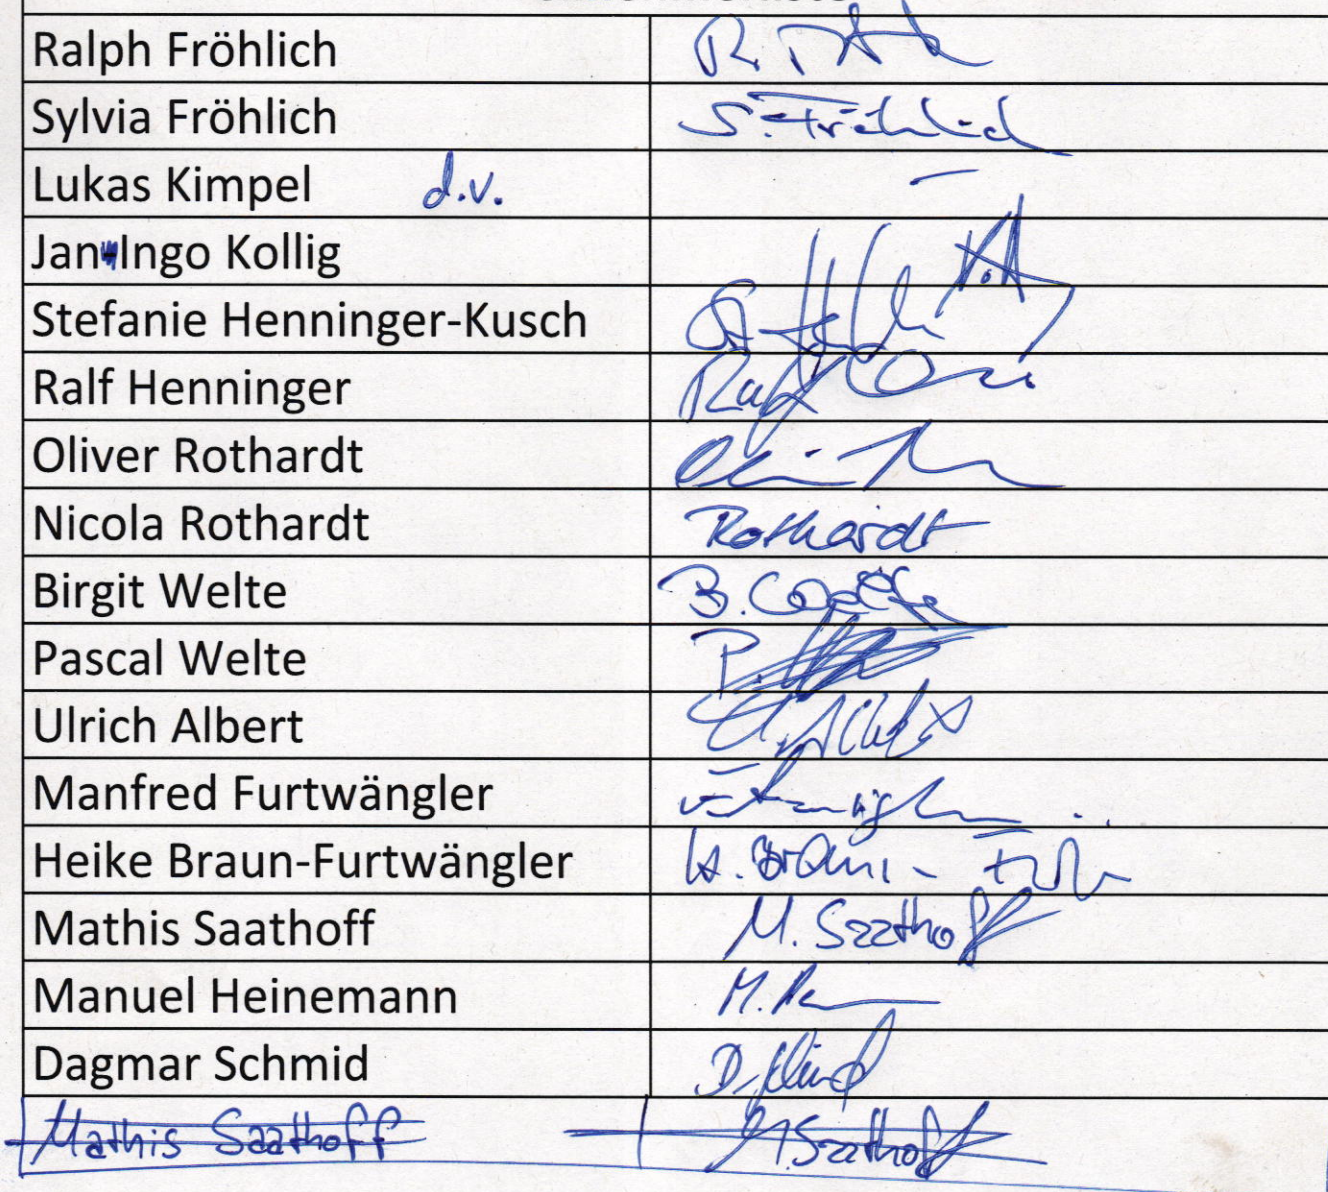 Ralph Fröhlich
Sylvia Fröhlich S. Fröhlich
Lukas Kimpel d.v. –
Jan-Ingo Kollig
Stefanie Henninger-Kusch
Ralf Henninger Ralf
Oliver Rothardt
Nicola Rothardt Rothardt
Birgit Welte B. Welte
Pascal Welte P.
Ulrich Albert U. Albert
Manfred Furtwängler
Heike Braun-Furtwängler H. Braun-
Mathis Saathoff M. Saathoff
Manuel Heinemann M.
Dagmar Schmid D.
Mathis Saathoff M. Saathoff